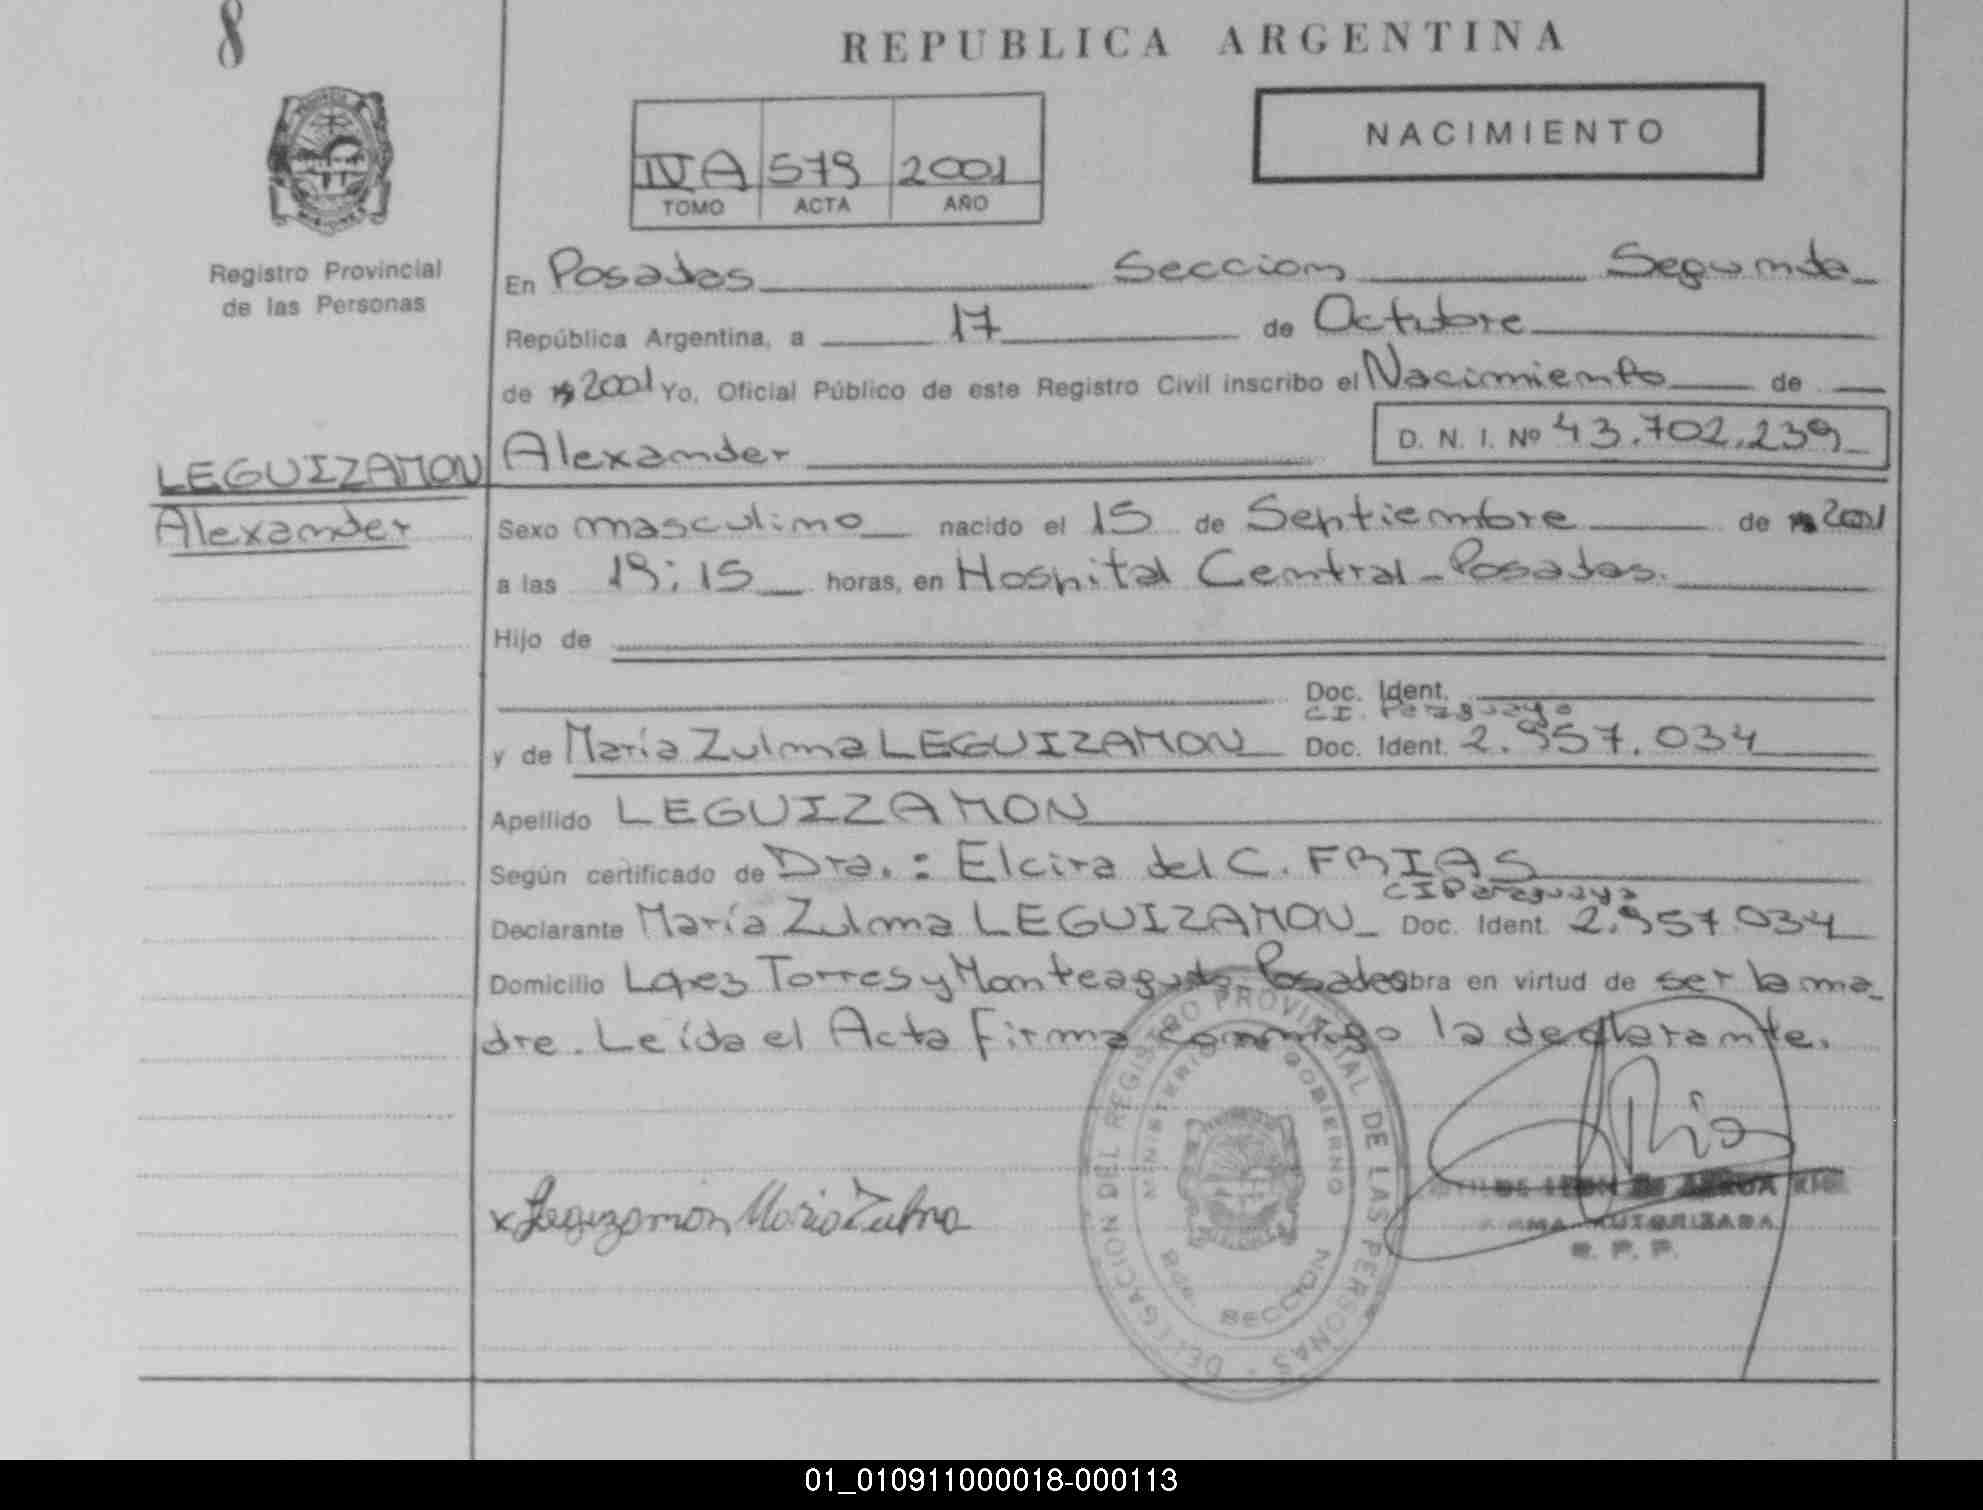 8
REPUBLICA ARGENTINA
NACIMIENTO
IVA 579 2001
TOMO ACTA AÑO
Registro Provincial
de las Personas
En Posadas Seccion Segunda
República Argentina, a 17 de Octubre
de 2001 Yo, Oficial Público de este Registro Civil inscribo el Nacimiento de
Alexander D. N. I. Nº 43.702.239
LEGUIZAMON
Alexander
Sexo masculino nacido el 15 de Septiembre de 2001
a las 19:15 horas, en Hospital Central - Posadas.
Hijo de
Doc. Ident.
CI. Paraguaya
y de María Zulma LEGUIZAMON Doc. Ident. 2.957.034
Apellido LEGUIZAMON
Según certificado de Dra. : Elcira del C. FRIAS
CI Paraguaya
Declarante María Zulma LEGUIZAMON Doc. Ident. 2.957.034
Domicilio Lopez Torres y Monteagudo Posadas obra en virtud de ser la ma
dre. Leída el Acta firma conmigo la declarante.
DELEGACION DEL REGISTRO PROVINCIAL DE LAS PERSONAS
MINISTERIO GOBIERNO
SECCION
x Leguizamon Maria Zulma
FIRMA AUTORIZADA
R. P. P.
01_010911000018-000113